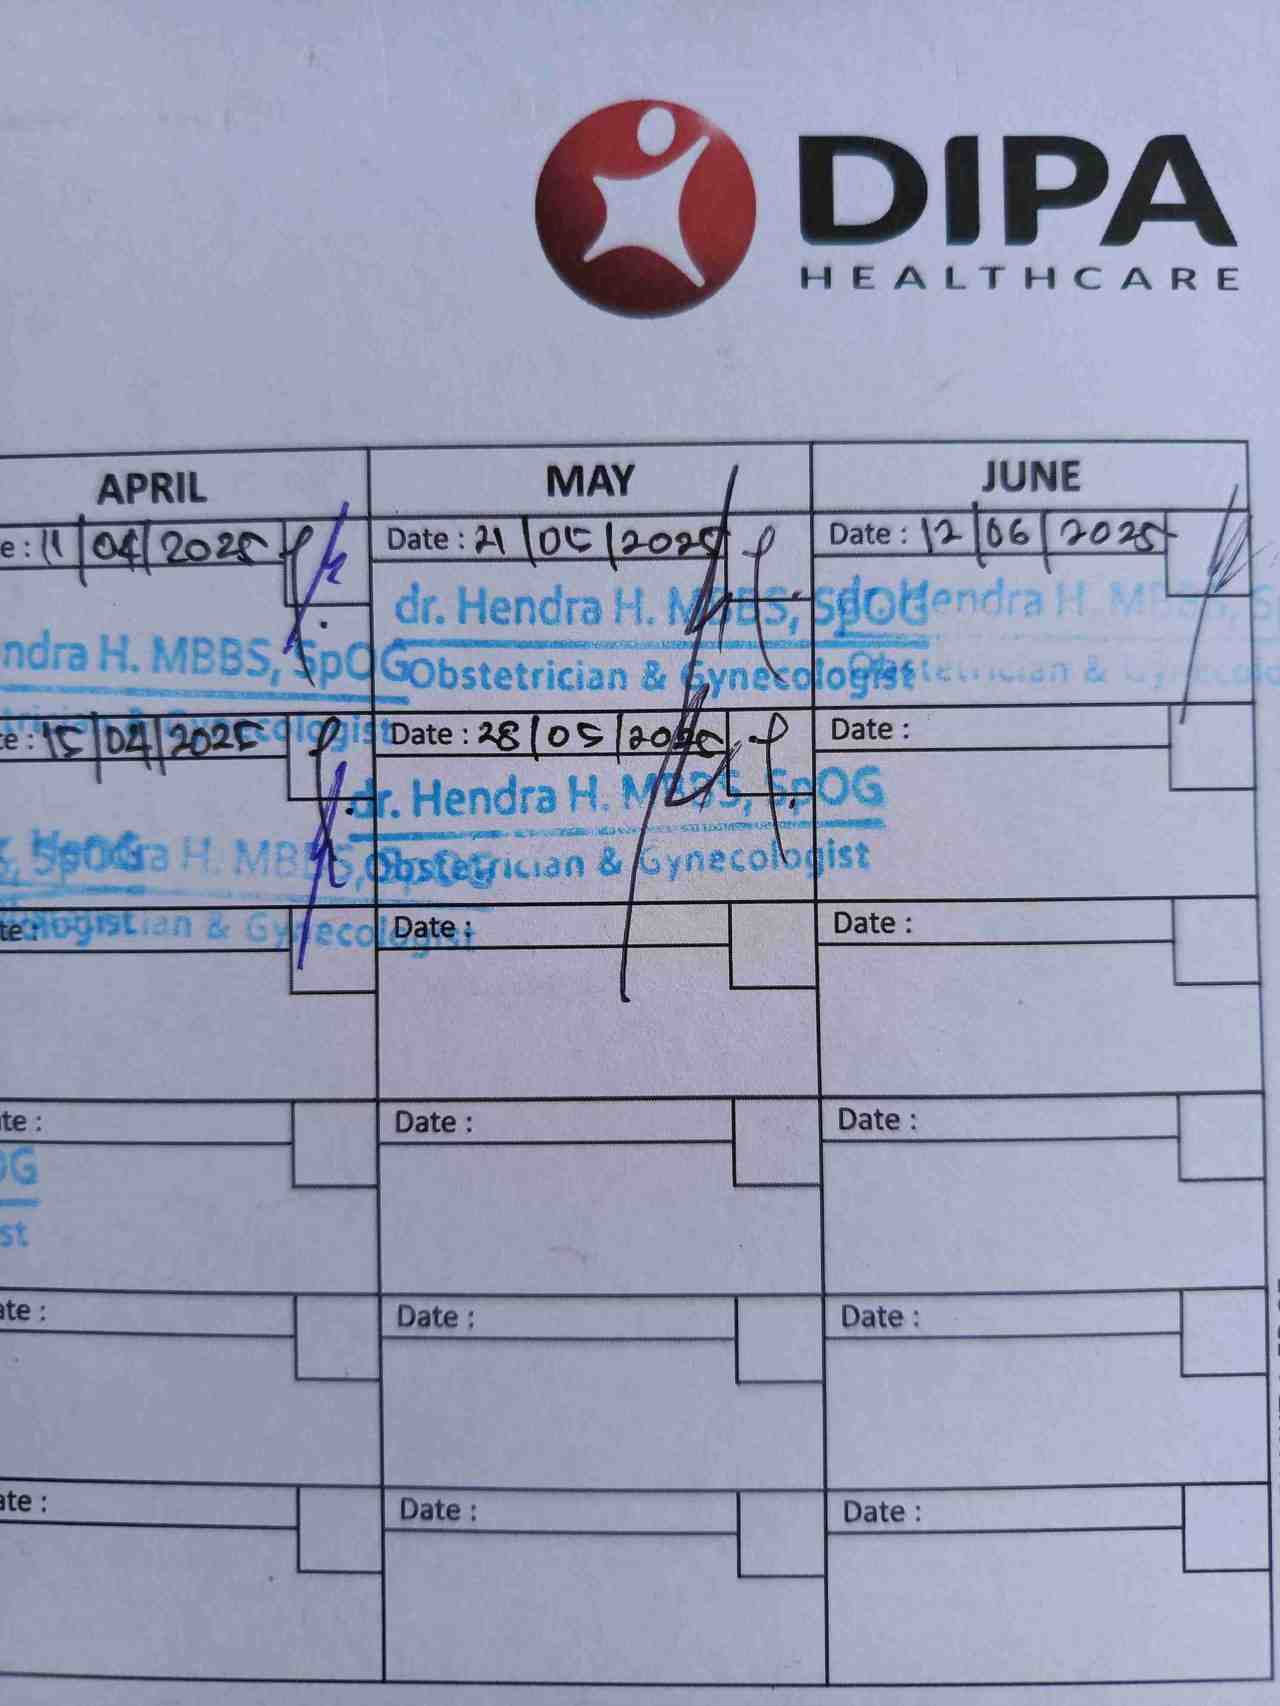 DIPA
HEALTHCARE
APRIL MAY JUNE
e : 11/04/2025 Date : 21/05/2025 Date : 12/06/2025
dr. Hendra H. MBBS, SpOG dr. Hendra H. MBBS, S
ndra H. MBBS, SpOG
Obstetrician & Gynecologist Obstetrician & Gynecolo
trician & Gynecologist
te : 15/04/2025 Date : 28/05/2025 Date :
dr. Hendra H. MBBS, SpOG
S, SpOG ra H. MBBS, SpOG
Obstetrician & Gynecologist
ologist ian & Gynecologist
te : Date : Date :
te : Date : Date :
OG
st
ate : Date : Date :
ate : Date : Date :